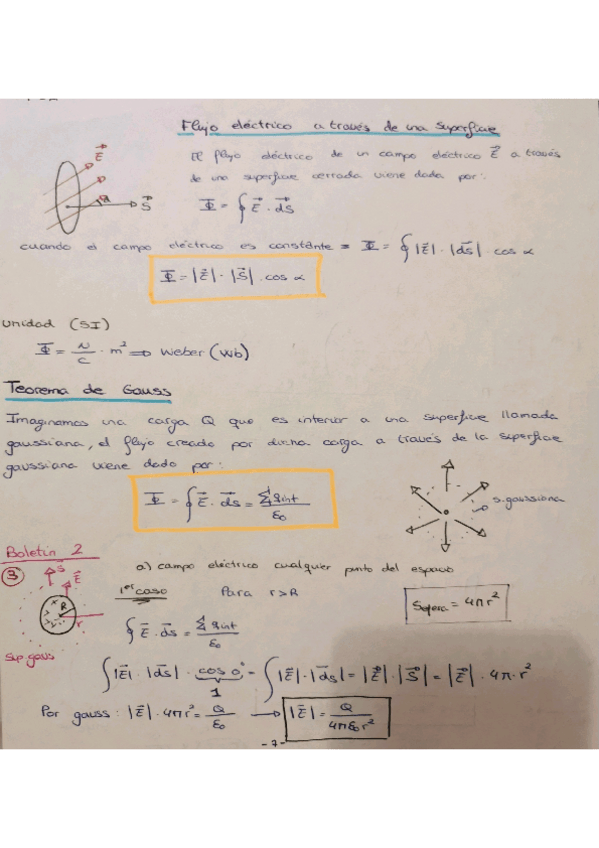 Flujo eléctrico a través de una superficie
El flujo eléctrico de un campo eléctrico E⃗ a través
de una superficie cerrada viene dada por:
E⃗
α
S⃗
Φ = ∮ E⃗ · ds⃗
cuando el campo eléctrico es constante = Φ = ∮ |E⃗| · |ds⃗| · cos α
Φ = |E⃗| · |S⃗| · cos α
Unidad (SI)
Φ = N/C · m² ⇒ Weber (Wb)
Teorema de Gauss
Imaginamos una carga Q que es interior a una superficie llamada
gaussiana, el flujo creado por dicha carga a través de la superficie
gaussiana viene dado por:
Φ = ∮ E⃗ · ds⃗ = Σ qint / ε₀
S. gaussiana
Boletín 2
3
S⃗
E⃗
R
r
Sup. gauss
a) campo eléctrico cualquier punto del espacio
1er caso Para r>R
Sesfera = 4πr²
∮ E⃗ · ds⃗ = Σ qint / ε₀
∫ |E⃗| · |ds⃗| · cos 0° = ∫ |E⃗| · |ds⃗| = |E⃗| · |S⃗| = |E⃗| · 4π · r²
1
Por gauss: |E⃗| · 4πr² = Q/ε₀ → |E⃗| = Q / 4πε₀r²
-7-